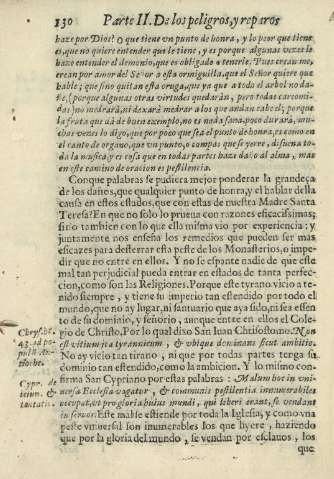 130 Parte II. De los peligros, y reparos
haze por Dios? O que tiene vn punto de honra, y lo peor que tiene
es, que no quiere entender que le tiene, y es porque algunas vezes le
haze entender el demonio, que es obligado a tenerle. Pues crean me,
crean por amor del Señor a esta ormiguilla, que el Señor quiere que
hable; que sino quitan esta oruga, que ya que a todo el arbol no da-
ñe, (porque algunas otras virtudes quedarán, pero todas carcomi-
das) no medrará, ni dexará medrar a los que andan cabe el; porque
la fruta que dá de buen exemplo, no es nada sana, poco durará, mu-
chas vezes lo digo, que por poco que sea el punto de honra, es como en
el canto de organo, que vn punto, o compas que se yerre, disuena to-
da la musica, y es cosa que en todas partes haze daño al alma, mas
en este camino de oracion es pestilencia.
Conque palabras se pudiera mejor ponderar la grandeça
de los daños, que qualquier punto de honra, y el hablar della
causa en estos estados, que con estas de nuestra Madre Santa
Teresa? En que no solo lo prueua con razones eficacissimas;
sino tambien con lo que ella misma vio por experiencia: y
juntamente nos enseña los remedios que pueden ser mas
eficazes para desterrar esta peste de los Monasterios, o impe-
dir que no entre en ellos. Y no se espante nadie de que este
mal tan perjudicial pueda entrar en estados de tanta perfec-
cion, como son las Religiones. Porque este tyrano vicio a te-
nido siempre, y tiene su imperio tan estendido por todo el
mundo, que no ay lugar, ni santuario que aya sido, ni sea essen
to de su dominio, y señorio, aunque entre en ellos el Cole-
gio de Christo. Por lo qual dixo San Iuan Chrisostomo. Non
est vitium ita tyrannicum, & vbique dominans sicut ambitio.
No ay vicio tan tirano, ni que por todas partes tenga su
dominio tan estendido, como la ambicion. Y lo mismo con-
firma San Cypriano por estas palabras: Malum hoc in vni-
uersa Ecclesia vagatur, & communis pestilentia innumerabiles
occupat, vt pro gloria huius mundi, qui liberi erant, se vendant
in seruos: Este mal se estiende por toda la Iglesia, y como vna
peste vniuersal son inumerables los que hyere, haziendo
que por la gloria del mundo, se vendan por esclauos, los
que
Chrys. hō.
43. ad po-
pul. An-
tioche.
Cypr. de
ieiun. &
tentatio.